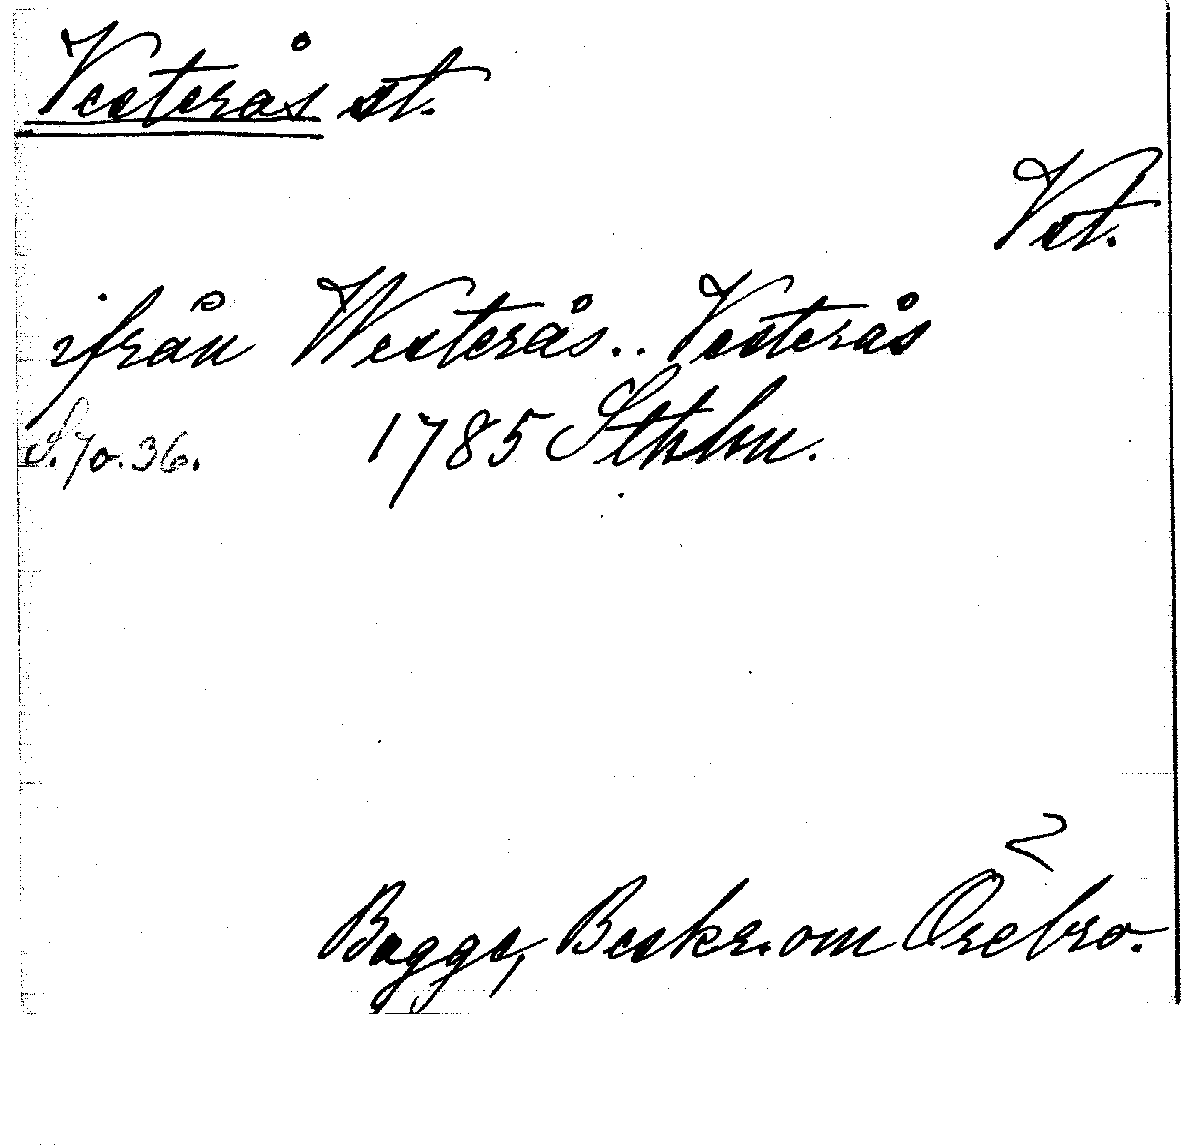 Vesterås st.
Vst.
ifrån Westerås.. Vesterås
S. 70. 36. 1785 Sthlm.
Bagge, Beskr. om Örebro.